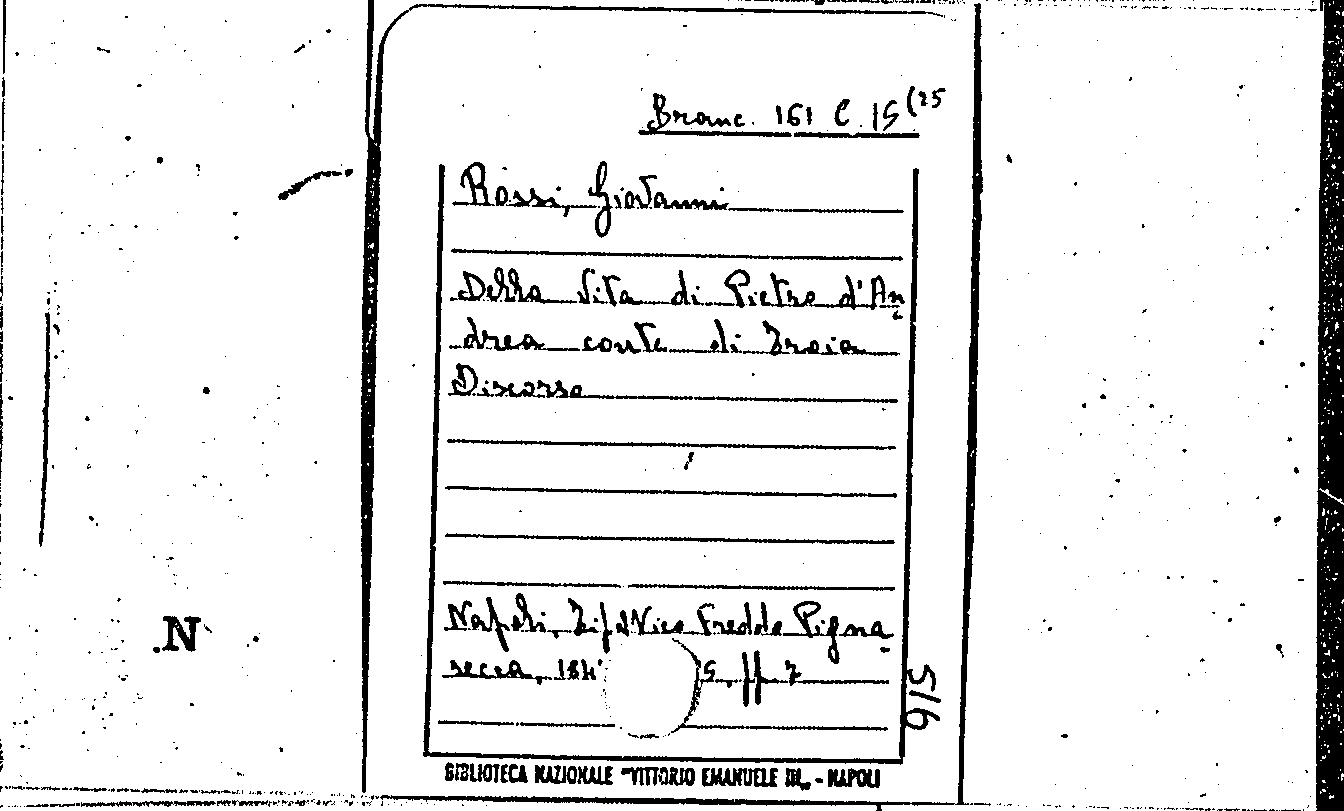 Branc. 161 C 15 (25
Rossi, Giovanni
Della Vita di Pietro d'An
drea conte di Troia
Discorso
Napoli, Tip. d Vico Freddo Pigna
secca, 184
pp 7
5/6
N
BIBLIOTECA NAZIONALE "VITTORIO EMANUELE III„ - NAPOLI